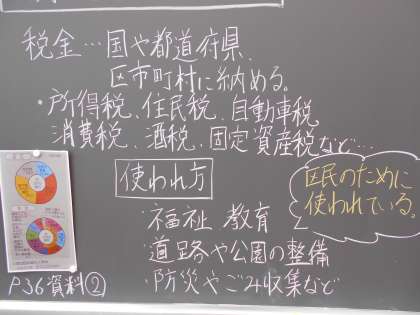 税金…国や都道府県、
区市町村に納める。
・所得税、住民税、自動車税
消費税、酒税、固定資産税など…
使われ方
・福祉 教育
・道路や公園の整備
・防災やごみ収集など
区民のために
使われている。
P36資料②